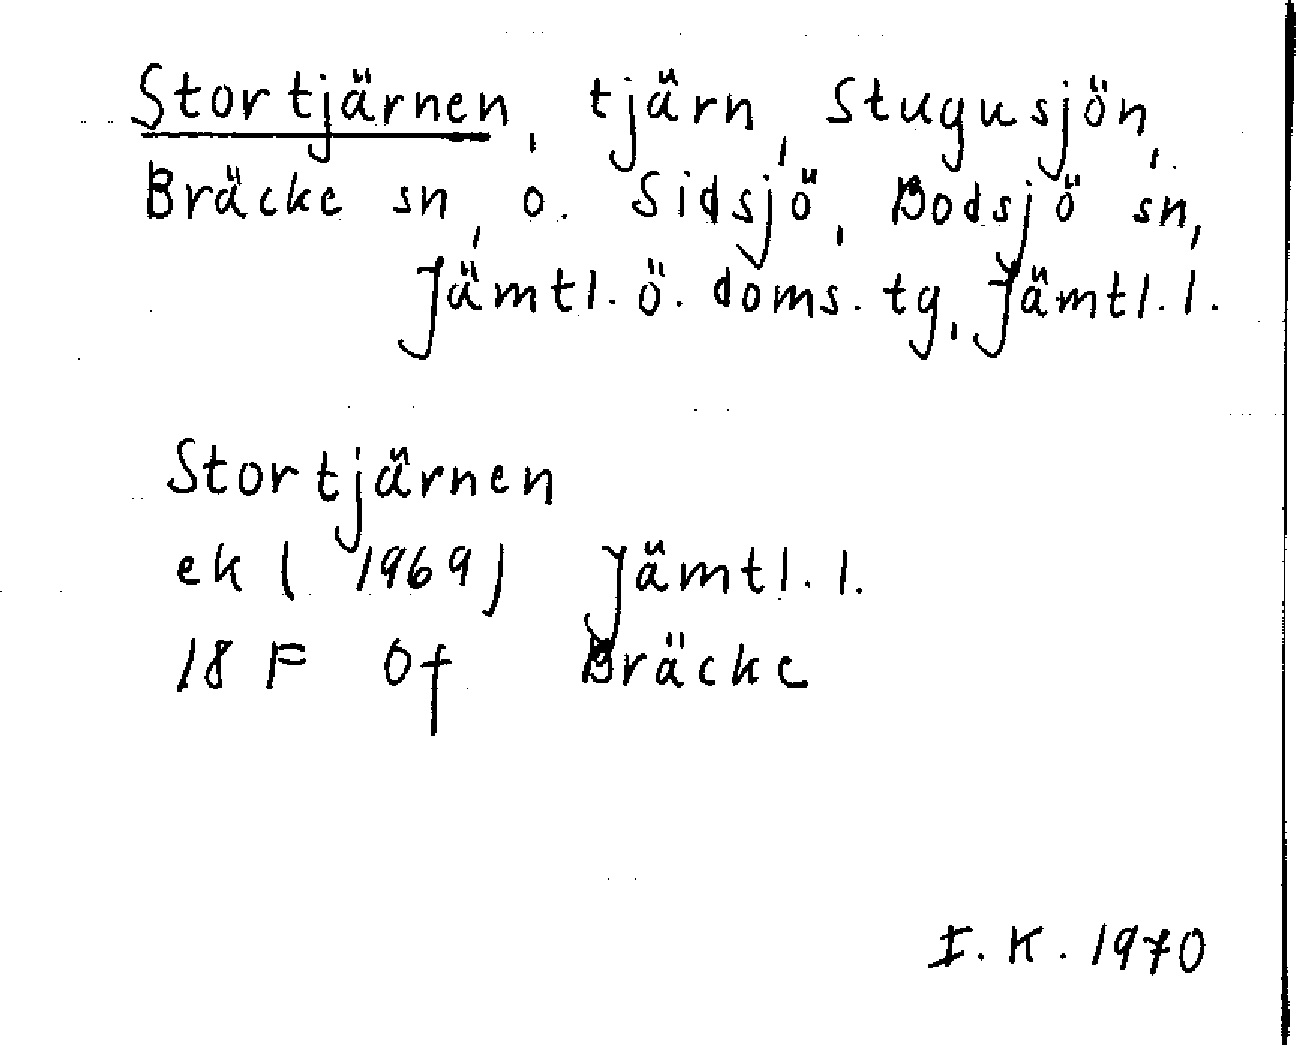 Stortjärnen, tjärn, Stugusjön,
Bräcke sn, o. Sidsjö, Bodsjö sn,
Jämtl. ö. doms. tg, Jämtl. l.
Stortjärnen
ek (1969) Jämtl. l.
18 F 0f Bräcke
I. K. 1970